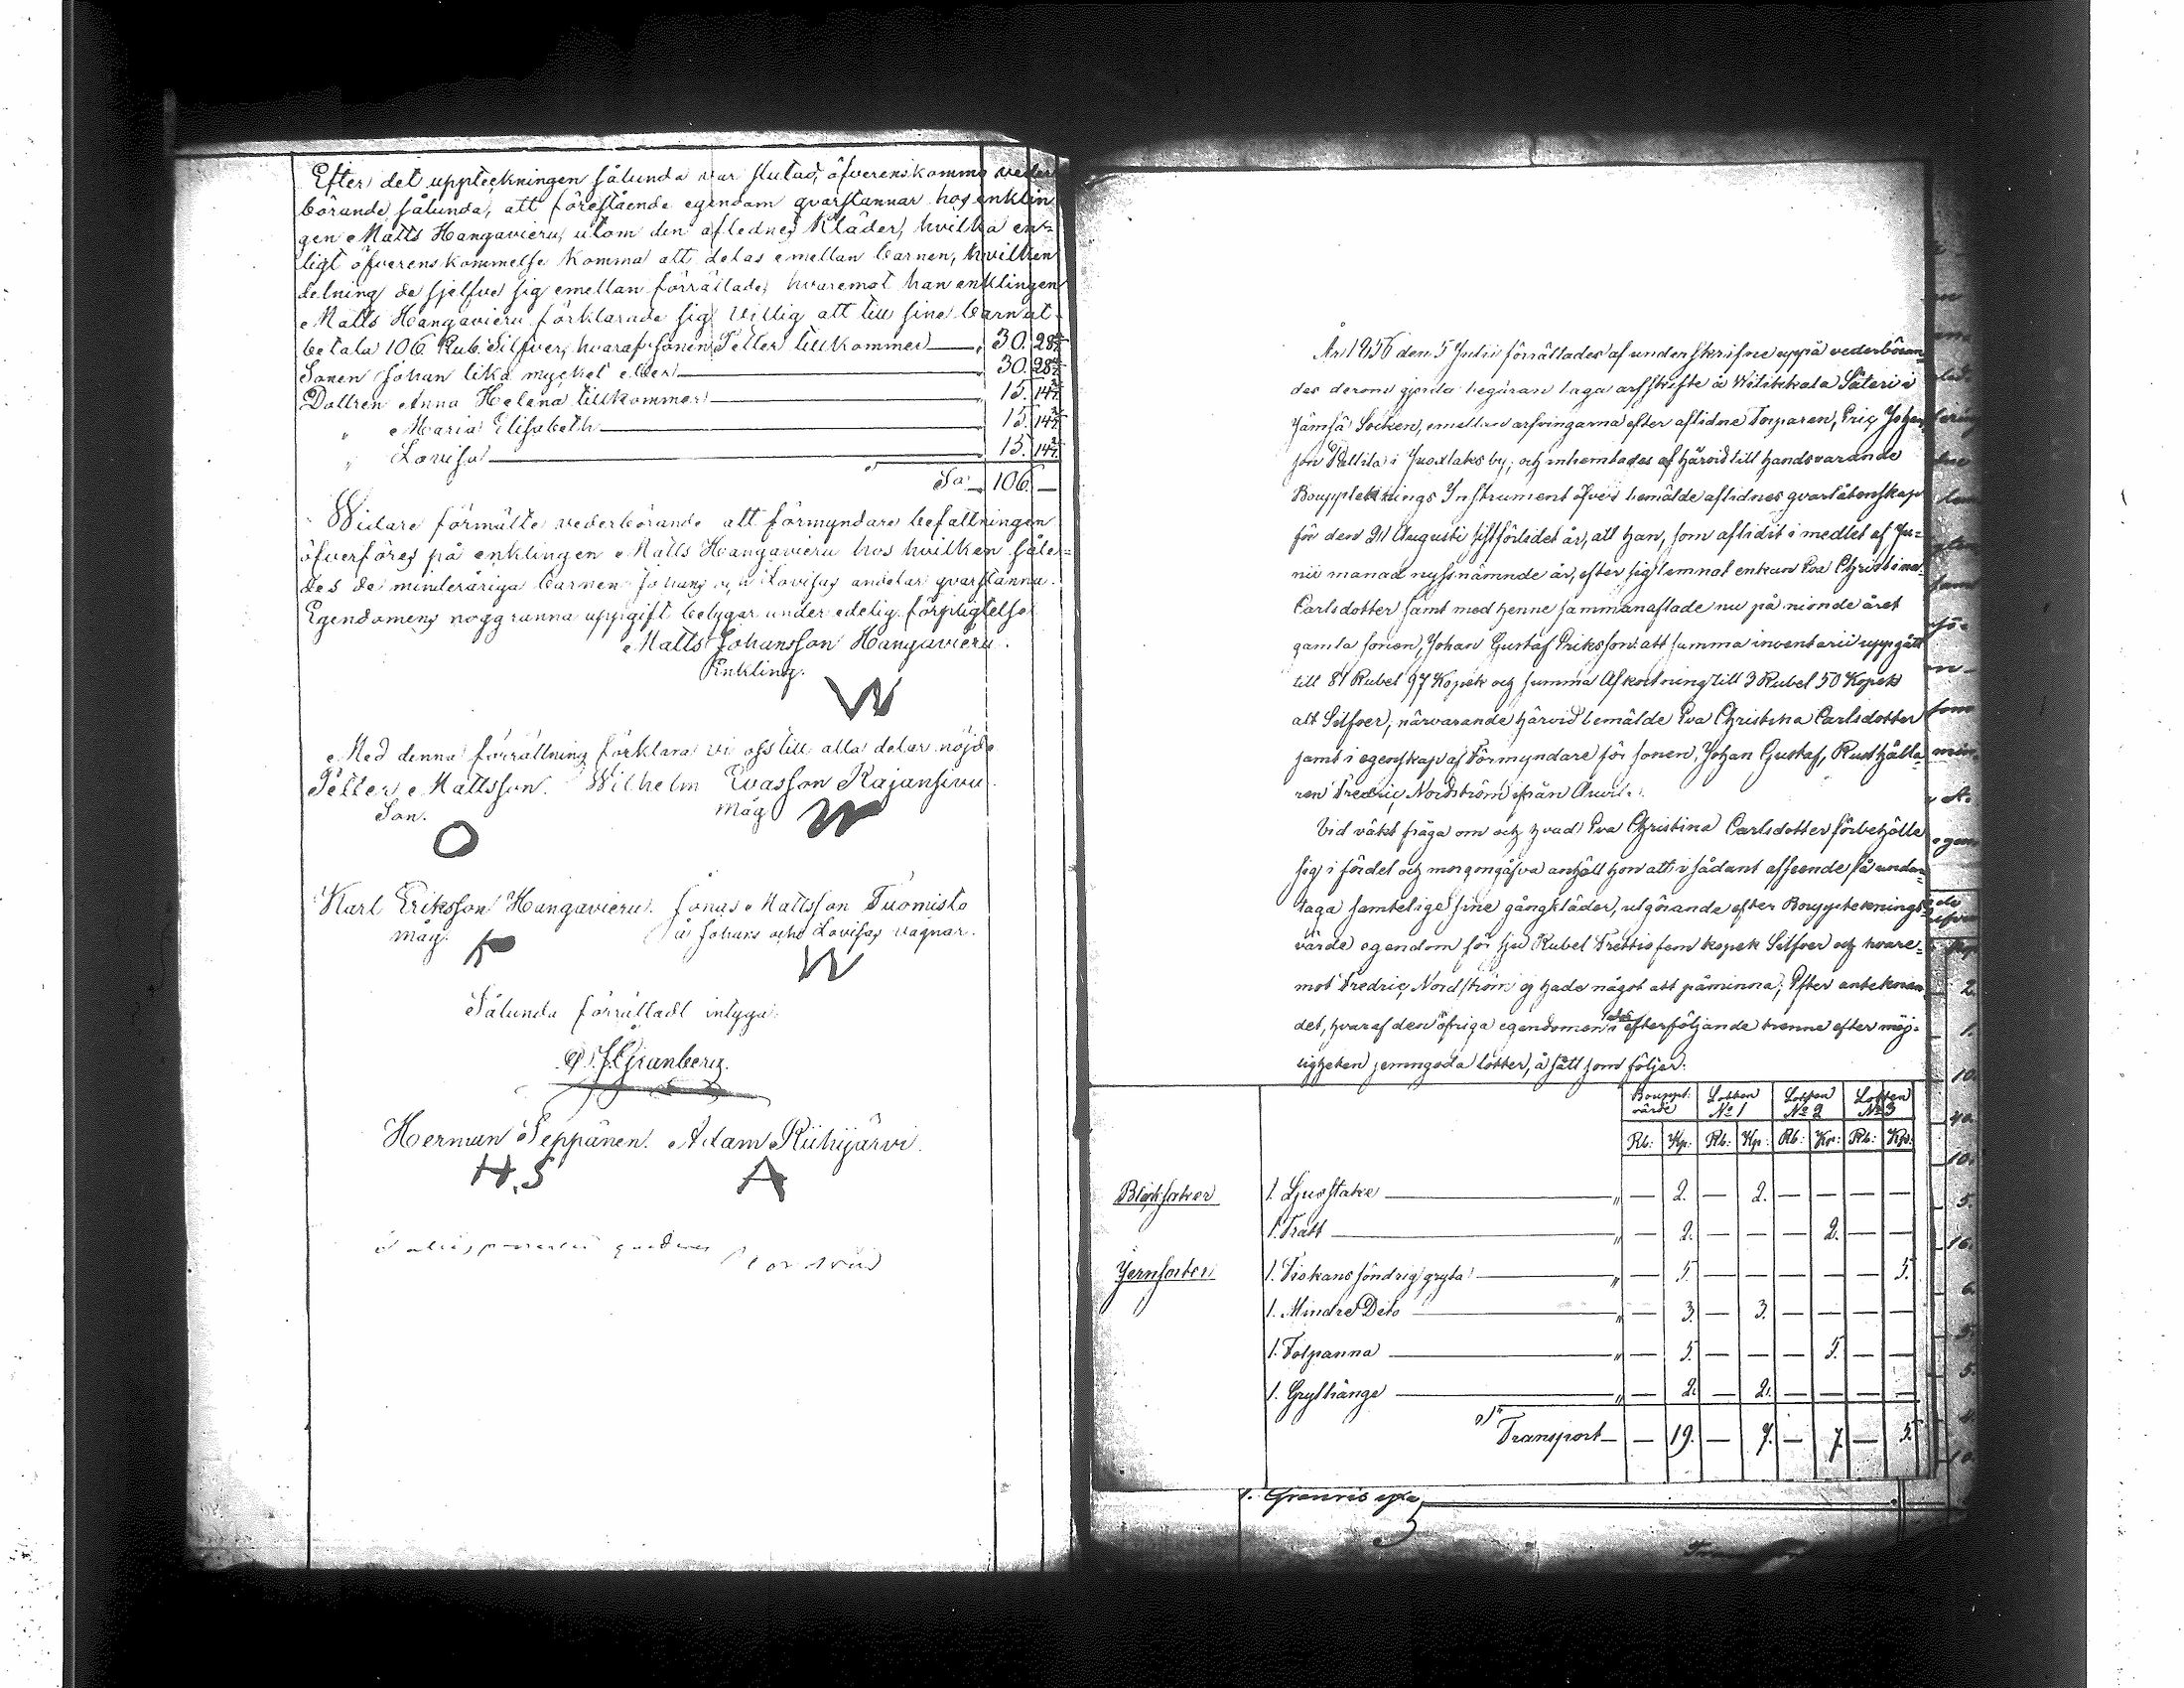 Efter det uppteckningen sålunda var slutad, öfverenskommo veder
börande sålunda, att förestående egendom qvarstannar hos enklin
gen Matts Hangavieru, utom den aflednes Kläder, hvilka en=
ligt öfverenskommelse komma att delas emellan barnen, hvilken
delning de sjelfve sig emellan förrättade, hvaremot han enklingen
Matts Hangavieru förklarade sig villig att till sine barn ut
betala 106 Rub. Silfver, hvaraf sonen Petter tillkommer 30. 28 4/7
Sonen Johan lika mycket eller 30. 28 4/7
Dottren Anna Helena tillkommer 15. 14 2/7
" Maria Elisabeth 15. 14 2/7
" Lovisa 15. 14 2/7
Sa 106. —
Widare förmälte vederbörande att förmyndare befattningen
öfverföres på enklingen Matts Hangavieru hos hvilken såle=
des de minderåriga barnen Johans och Lovisas andelar qvarstanna.
Egendomens noggranna uppgift betygar under edelig förpligtelse
Matts Johansson Hangavieru.
Enkling.
W
Med denna förrättning förklara vi oss till alla delar nöjde
Petter Mattsson. Wilhelm Evasson Kajansivu.
Son. Måg
O W
Karl Eriksson Hangavieru. Jonas Mattsson Tuomisto
Måg. Johans och Lovisas vägnar.
W
Sålunda förrättadt intyga:
Granberg.
Herman Seppänen. Adam Riihijärvi.
H.S A
År 1856 den 5 Julii förrättades af underskrifne uppå vederböran=
des derom gjorda begäran laga arfskifte å Witikkala Säteri i
Jämsä Socken, emellan arfvingarna efter aflidne Torparen, Eric Johan
son Pellila i Juoxlaks by, och inhemtades af härvid till handsvarande
Boupptecknings Instrument öfver bemälde aflidnes qvarlåtenskap
för den 21 Augusti sistförlidet år, att han, som aflidit i medlet af Ju=
nii manad nyssnämnde år, efter sig lemnat enkan Eva Christina
Carlsdotter samt med henne sammanaflade nu på nionde året
gamla sonen, Johan Gustaf Eriksson: att summa inventarii uppgått
till 81 Rubel 97 Kopek och summa Afkortning till 3 Rubel 50 Kopek
alt Silfver; närvarande härvid bemälde Eva Christina Carlsdotter
samt i egenskap af Förmyndare för sonen, Johan Gustaf, Rusthålla=
ren Fredric Nordström ifrån
Vid väkt fråga om och hvad Eva Christina Carlsdotter förbehölle
sig i fördel och morgongåfva anhöll hon att i sådant afseende få undan=
taga samtelige sine gångkläder, utgörande efter Bouppteknings
värde egendom för sju Rubel Trettio fem kopek Silfver och hvare=
mot Fredric Nordström ej hade något att påminna; Efter anteknan
det, hvaraf den öfriga egendomen i efterföljande trenne efter möj=
ligheten jemngoda lotter, å sätt som följer:
Bouppt: värde Lotten No 1 Lotten No 2 Lotten No 3
Rb: Kp: Rb: Kp: Rb: Kp: Rb: Kp:
Bleksaker 1. Ljusstake " — 2. — 2. — — — —
1. Tratt " — 2. — — — 2. — —
Jernsaker 1. Fiskans söndrig gryta " — 5. — — — — — 5.
1. Mindre Dito " — 3. — 3. — — — —
1. Fotpanna " — 5. — — — 5. — —
1. Grythänge " — 2. — 2. — — — —
Transport — 19. — 7. — 7. — 5.